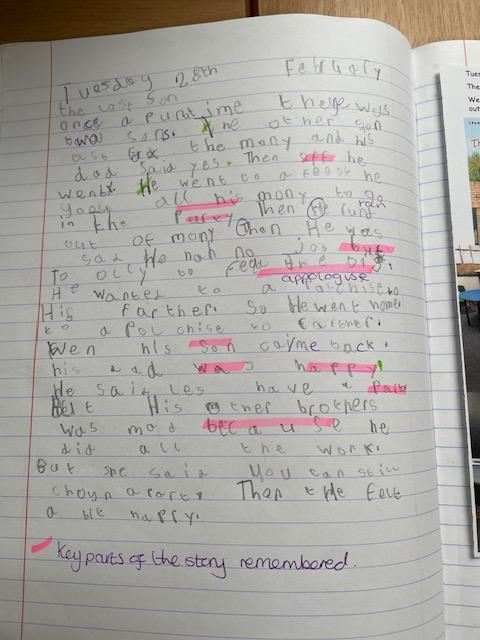 Tuesday 28th Febrary
the lost son
once a pun time there was
two sons. the other son
ask for the mony and his
dad said yes. Then off he
went. He went to a feest he
yous all his mony to go
in the parcy Then He rund
ran
out of mony Then He was
sad He hah no job but
To olly to feed the big.
appologise
He wanted to a Polchise to
His farther. So He went home
to a Pol chise to farther.
Wen his son caime back.
his dad was happy!
He said les have a Party
But His other brothers
was mad because he
did all the work.
But she said You can still
choyn a party Then the feet
a bit happy.
Key parts of the story remembered.
Tues
The
We
out